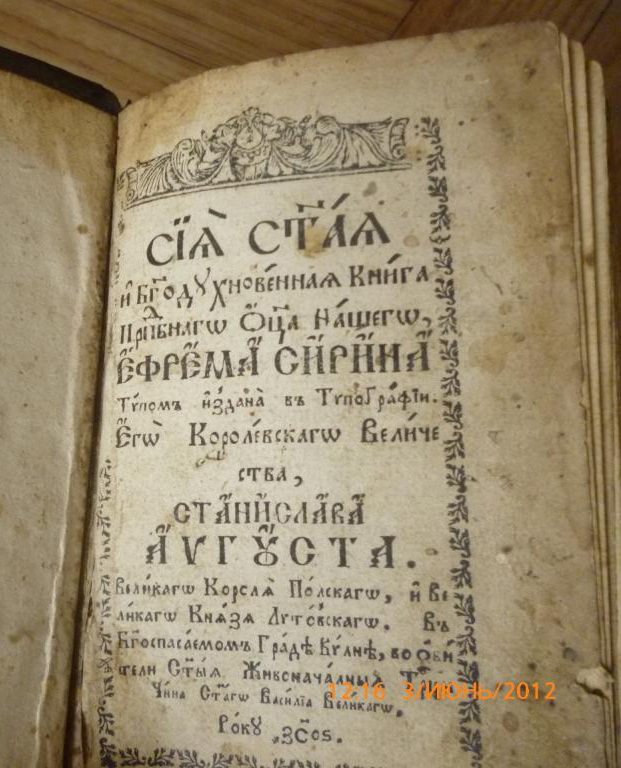 СїѦ̀ Ст҃аѧ
и҆ Бг҃одꙋхнове́ннаѧ Кни́га
Прпⷣбнагѡ Ѻц҃а на́шегѡ,
Є҆фре́ма Си́рина
Тѵпомъ и҆зⷣана̀ въ Тѵпогра́фїи.
Є҆гѡ̀ Короле́вскагѡ Вели́че
ства,
Станисла́ва
А҆ѵгꙋ́ста.
Вели́кагѡ Королѧ̀ По́лскагѡ, и҆ Ве
ли́кагѡ Кнѧ́зѧ Лѵто́вскагѡ. Въ
Бг҃оспаса́емомъ Гра́дѣ Ви́лнѣ, во Ѻ҆би́
тели Ст҃ыѧ Живонача́лныѧ
Чи́на Ст҃агѡ Васи́лїа Вели́кагѡ.
Ро́кꙋ
12:16 3/ИЮНЬ/2012